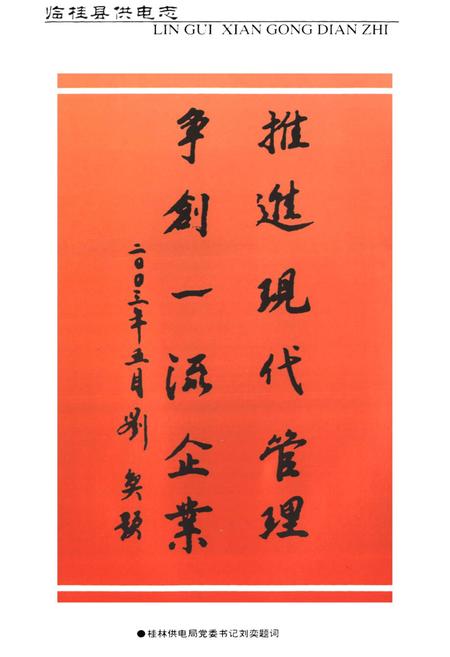 临桂县供电志
LIN GUI XIAN GONG DIAN ZHI
推進現代管理
争創一流企業
二〇〇三年五月劉奕題
●桂林供电局党委书记刘奕题词